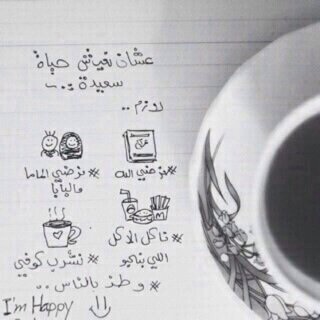 عشان نعيش حياة
سعيدة ..~
لازم ..
#نرضي الله
#نرضي الماما
والبابا
#ناكل الأكل
اللي بنحبو
#نشرب كوفي
#وطز بالناس ..
I'm Happy